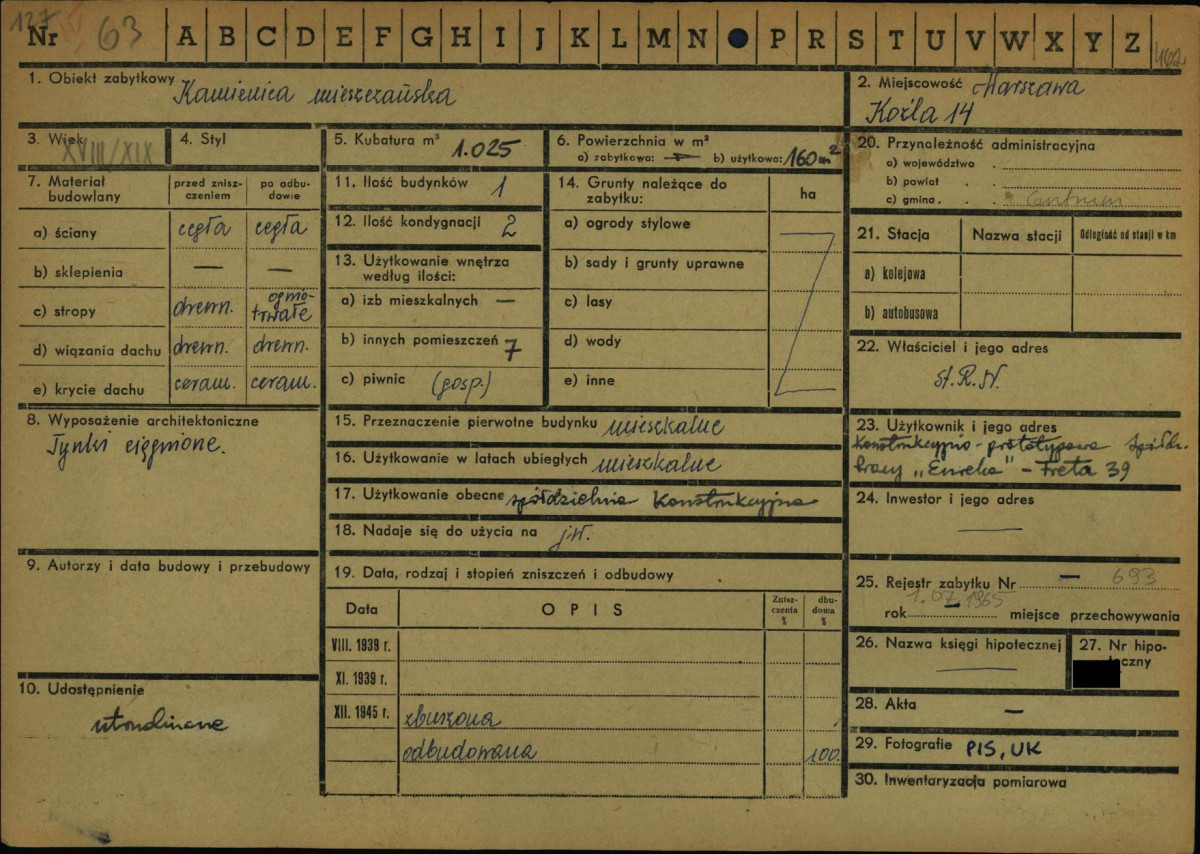 127
Nr 63 A B C D E F G H I J K L M N P R S T U V W X Y Z 402
1. Obiekt zabytkowy Kamienica mieszczańska
2. Miejscowość Warszawa
Koźla 14
3. Wiek XVIII/XIX
4. Styl
5. Kubatura m³ 1.025
6. Powierzchnia w m²
a) zabytkowa: — b) użytkowa: 160 m²
7. Materiał budowlany
przed zniszczeniem
po odbudowie
a) ściany cegła cegła
b) sklepienia — —
c) stropy drewn. ogniotrwałe
d) wiązania dachu drewn. drewn.
e) krycie dachu ceram. ceram.
8. Wyposażenie architektoniczne
Tynki ciągnione.
9. Autorzy i data budowy i przebudowy
10. Udostępnienie
utrudnione
11. Ilość budynków 1
12. Ilość kondygnacji 2
13. Użytkowanie wnętrza
według ilości:
a) izb mieszkalnych —
b) innych pomieszczeń 7
c) piwnic (gosp.)
14. Grunty należące do
zabytku:
ha
a) ogrody stylowe
b) sady i grunty uprawne
c) lasy
d) wody
e) inne
15. Przeznaczenie pierwotne budynku mieszkalne
16. Użytkowanie w latach ubiegłych mieszkalne
17. Użytkowanie obecne spółdzielnia Konstrukcyjna
18. Nadaje się do użycia na j.w.
19. Data, rodzaj i stopień zniszczeń i odbudowy
Data OPIS Zniszczenia % dbudowa %
VIII. 1939 r.
XI. 1939 r.
XII. 1945 r. zburzona
odbudowana 100.
20. Przynależność administracyjna
a) województwo
b) powiat
c) gmina Centrum
21. Stacja Nazwa stacji Odległość od stacji w km
a) kolejowa
b) autobusowa
22. Właściciel i jego adres
St. R. N.
23. Użytkownik i jego adres
Konstrukcyjno-prototypowa Spółdz.
Pracy „Eureka" – Freta 39
24. Inwestor i jego adres
—
25. Rejestr zabytku Nr — 693
rok 1.07.1965 miejsce przechowywania
26. Nazwa księgi hipotecznej
—
27. Nr hipo-
teczny
28. Akta —
29. Fotografie PIS, UK
30. Inwentaryzacja pomiarowa